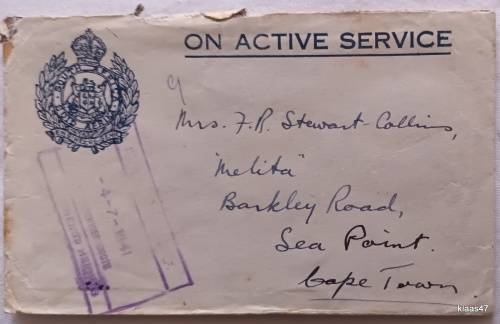 ON ACTIVE SERVICE
Mrs. F. R. Stewart-Collins,
"Melita"
Barkley Road,
Sea Point.
Cape Town
-4-7-
klaas47